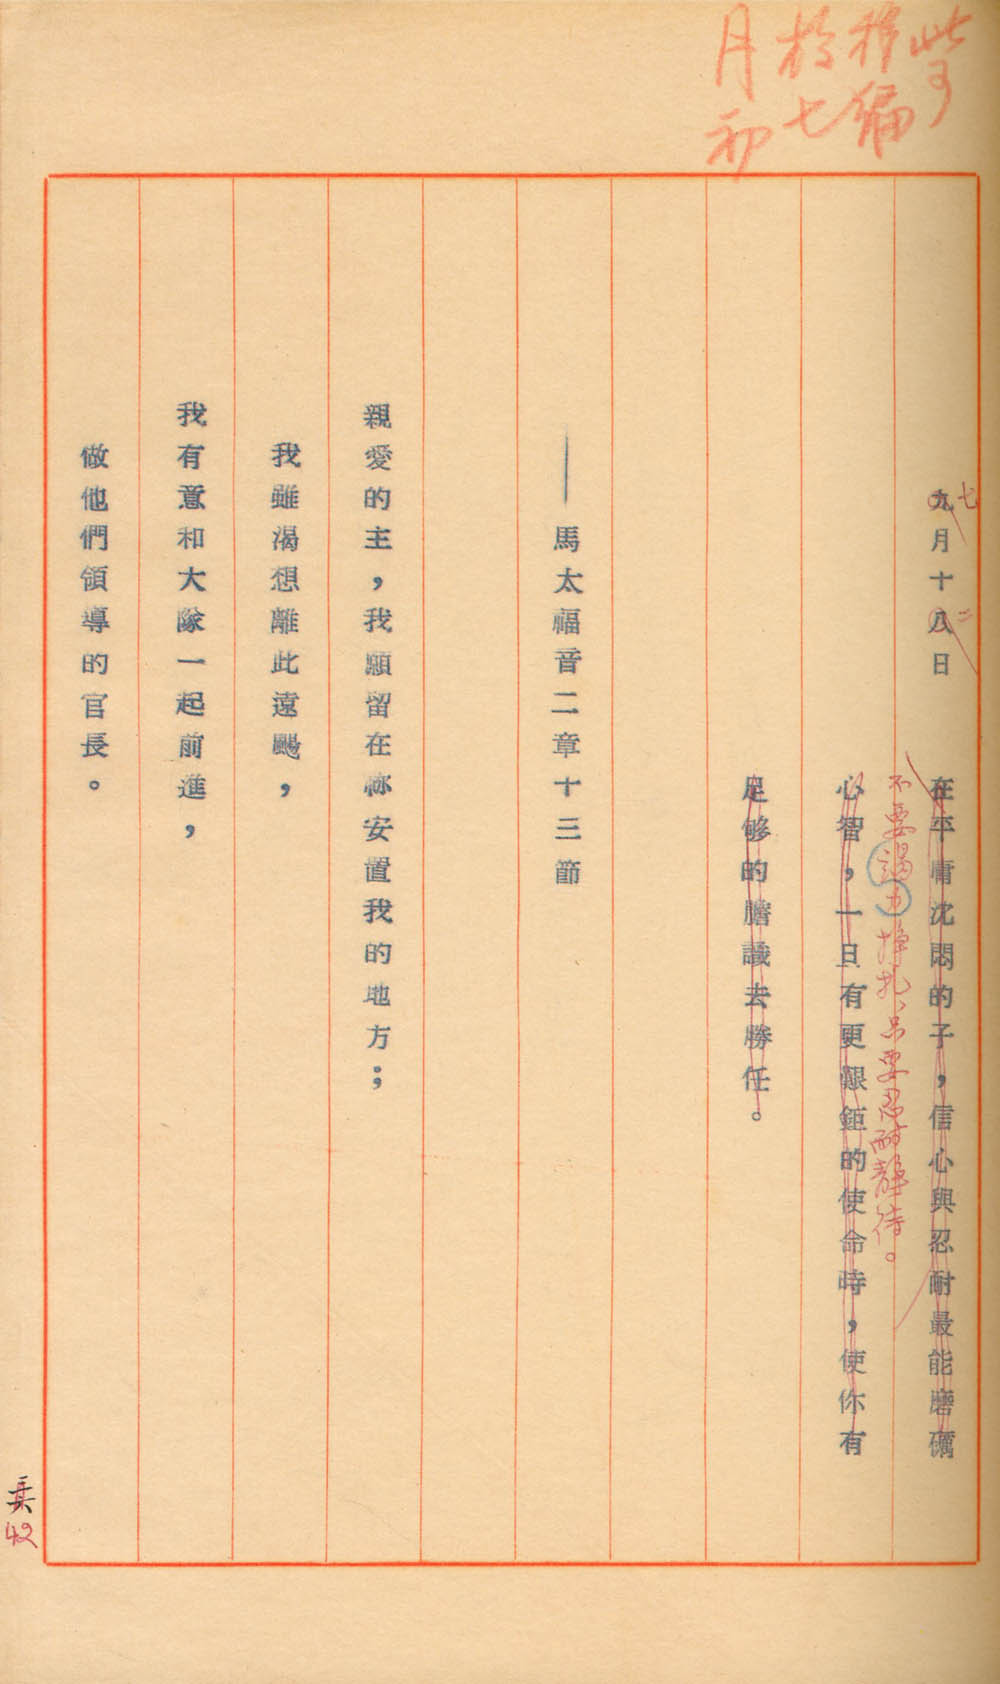 此可
移編
於七
月初
九月十八日
七
二
在平庸沈悶的子，信心與忍耐最能磨礪
不要竭力掙扎、只要忍耐靜待。
心智，一旦有更艱鉅的使命時，使你有
足够的膽識去勝任。
——馬太福音二章十三節
親愛的主，我願留在祢安置我的地方；
我雖渴想離此遠颺，
我有意和大隊一起前進，
做他們領導的官長。
42